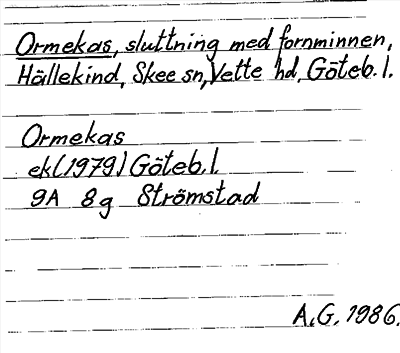 Ormekas, sluttning med fornminnen,
Hällekind, Skee sn, Vette hd, Göteb. l.
Ormekas
ek (1979) Göteb. l.
9A 8g Strömstad
A.G. 1986.